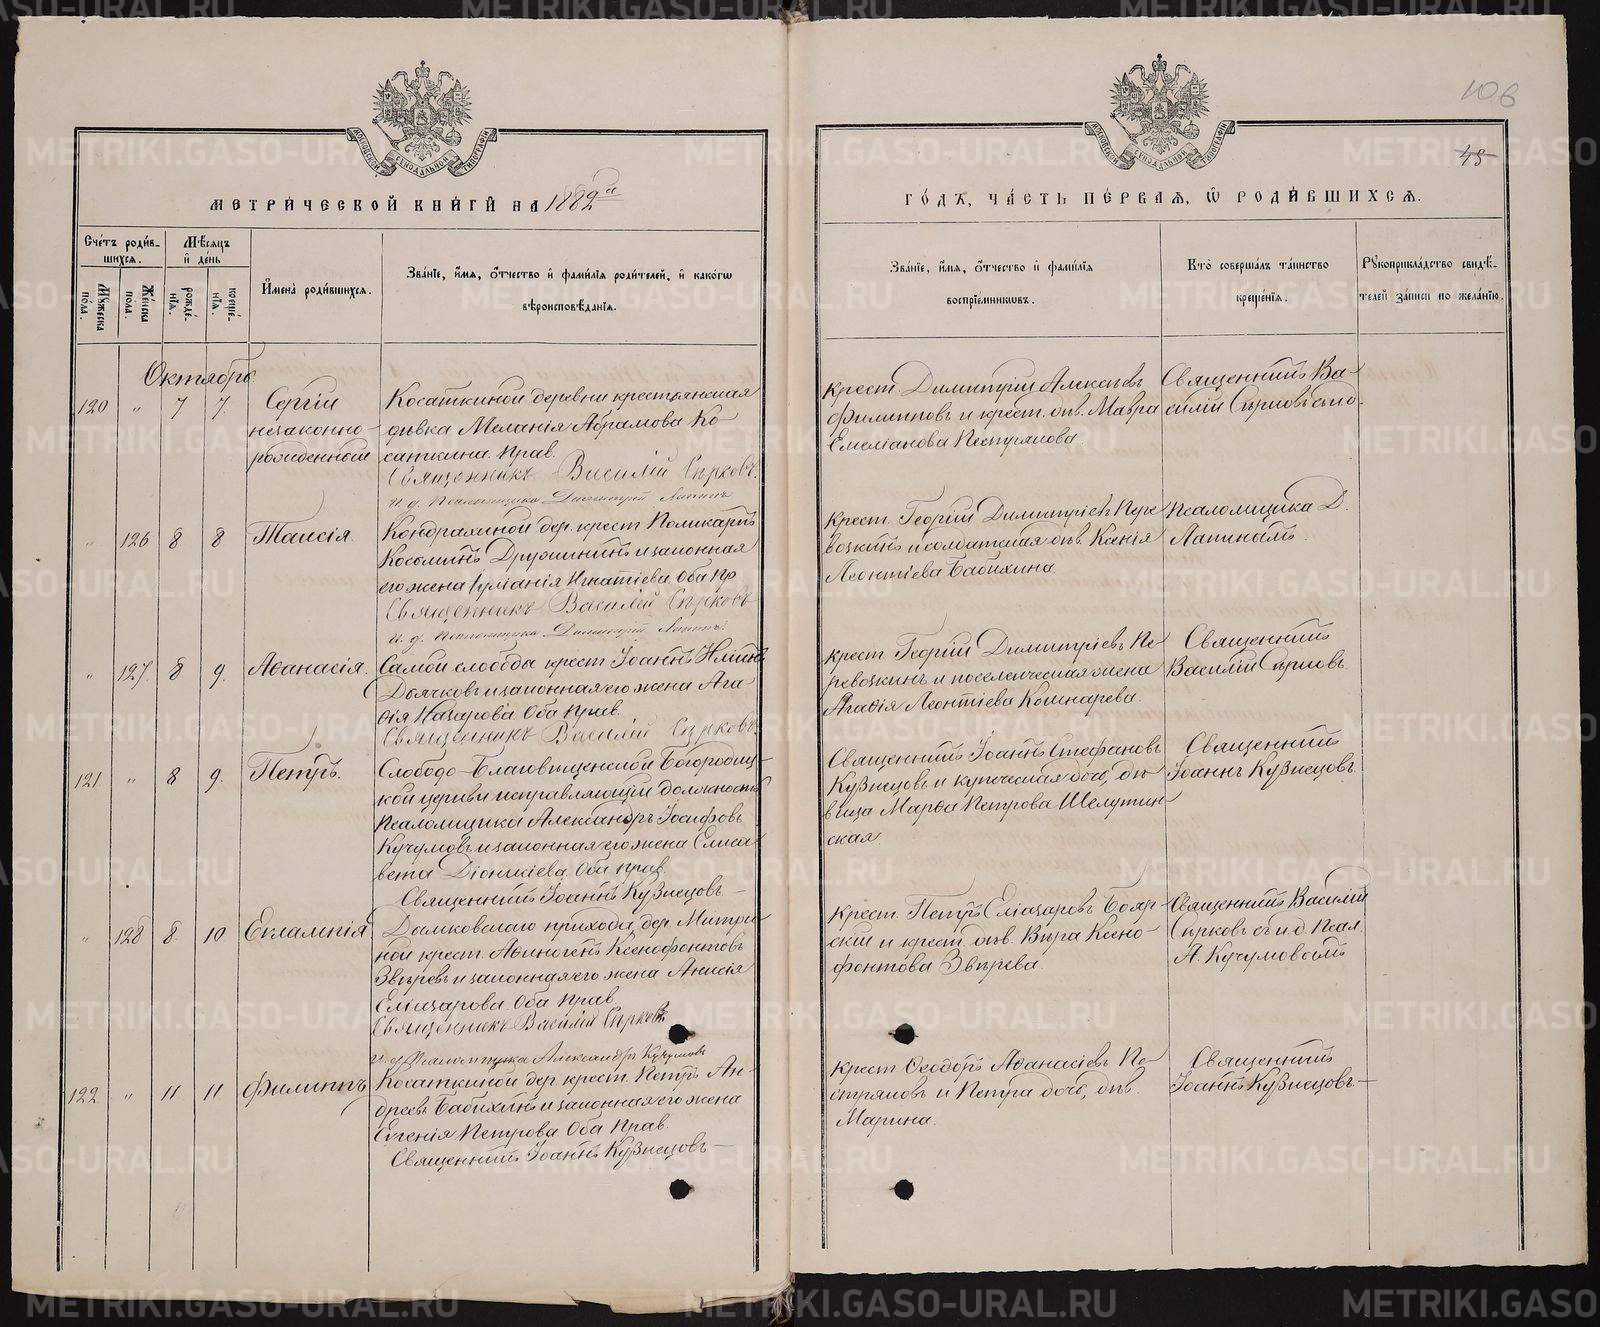 106
48
МЕТРИЧЕСКОЙ КНИГИ НА 1882й
ГОДЪ, ЧАСТЬ ПЕРВАЯ, Ѡ РОДИВШИХСЯ.
Счетъ родив-
шихся.
Мѣсяцъ
и день
Мужеска пола.
Женска пола.
рожде-
нія.
креще-
нія.
Имена родившихся.
Званіе, имя, ѻтчество и фамилія родителей, и какогѡ
вѣроисповѣданія.
Званіе, имя, ѻтчество и фамилія
воспріемниковъ.
Кто совершалъ таинство
крещенія.
Рукоприкладство свидѣ-
телей записи по желанію.
Октябрь
120 " 7 7.
Сергій
незаконно-
рожденный
Косаткиной деревни крестьянская
дѣвка Меланія Абрамова Ко-
саткина. Прав.
Священникъ Василій Сырковъ.
И. д. Псаломщика Димитрій Лапинъ
крест. Димитрій Алексѣевъ
Филиповъ и крест. дѣв. Мавра
Емеліанова Пестрякова.
Священникъ Ва-
силій Сырковъ
" 126 8 8
Таисія.
Кондрахиной дер. крест. Поликарпъ
Дружининъ и законная
его жена Іуліанія Игнатіева. Оба пр
Священникъ Василій Сырковъ
И. д. Псаломщика Димитрій Лапинъ.
Крест. Георгій Димитріевъ Пере-
возкинъ и солдатская дѣв. Ксенія
Леонтіева Бабихина.
Псаломщика Д.
Лапинымъ.
" 127 8 9.
Аѳанасія.
Самой слободы крест. Іоаннъ
Дьячковъ и законная его жена Ага-
ѳія Назарова. Оба Прав.
Священникъ Василій Сырковъ
крест. Георгій Димитріевъ Пе-
ревозкинъ и поселенческая жена
Агаѳія Леонтіева Кошкарева.
Священникъ
Василій Сырковъ
121 " 8 9.
Петръ.
Слободо-Благовѣщенской Богородиц-
кой церкви исправляющій должность
Псаломщика Александръ Іосифовъ
Кучумовъ и законная его жена Елиса-
вета Діонисіева. Оба прав.
Священникъ Іоаннъ Кузнецовъ
Священникъ Іоаннъ Стефановъ
Кузнецовъ и купеческая дочь, дѣ-
вица Марѳа Петрова Шелутин-
ская.
Священникъ
Іоаннъ Кузнецовъ
" 128 8 10
Еклампія.
прихода, дер. Митри-
ной крест. Аѳиногенъ Ксенофонтовъ
Звѣревъ и законная его жена Анисія
Еліазарова. Оба Прав.
Священникъ Василій Сырковъ
И. д. Псаломщика Александръ Кучумовъ
крест. Петръ Еліазаровъ Бояр-
скій и крест. дѣв. Вѣра Ксено-
фонтова Звѣрева
Священникъ Василій
Сырковъ съ и. д. Псал.
А. Кучумовымъ
122 " 11 11
Филиппъ
Косаткиной дер. крест. Петръ Ан-
дреевъ Бабихинъ и законная его жена
Евгенія Петрова. Оба Прав.
Священникъ Іоаннъ Кузнецовъ
крест. Ѳеодоръ Аѳанасіевъ Пе-
стряковъ и Петра дочь, дѣв.
Марина.
Священникъ
Іоаннъ Кузнецовъ
METRIKI.GASO-URAL.RU